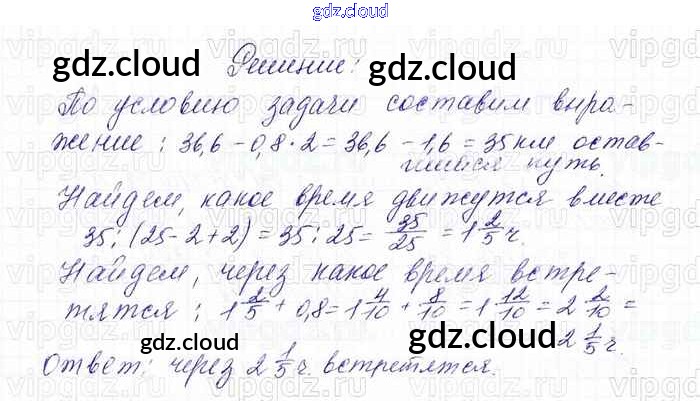 gdz.cloud
Решение:
gdz.cloud gdz.cloud
По условию задачи составим выра-
жение: 36,6 - 0,8 · 2 = 36,6 - 1,6 = 35 км остав-
шийся путь.
Найдем, какое время движутся вместе
35 : (25 - 2 + 2) = 35 : 25 = 35/25 = 1 2/5 ч.
Найдем, через какое время встре-
тятся: 1 2/5 + 0,8 = 1 4/10 + 8/10 = 1 12/10 = 2 2/10 =
gdz.cloud gdz.cloud 2 1/5 ч.
Ответ: через 2 1/5 ч. встретятся.